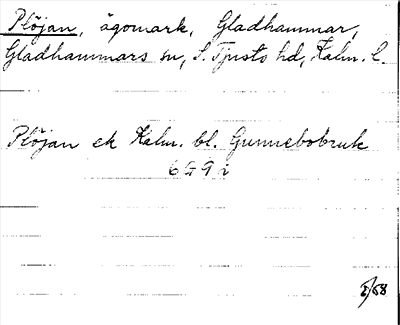 Plöjan, ägomark, Gladhammar,
Gladhammars sn, S. Tjusts hd, Kalm. l.
Plöjan ek Kalm. bl. Gunnebobruk
6 G 9 i
/58